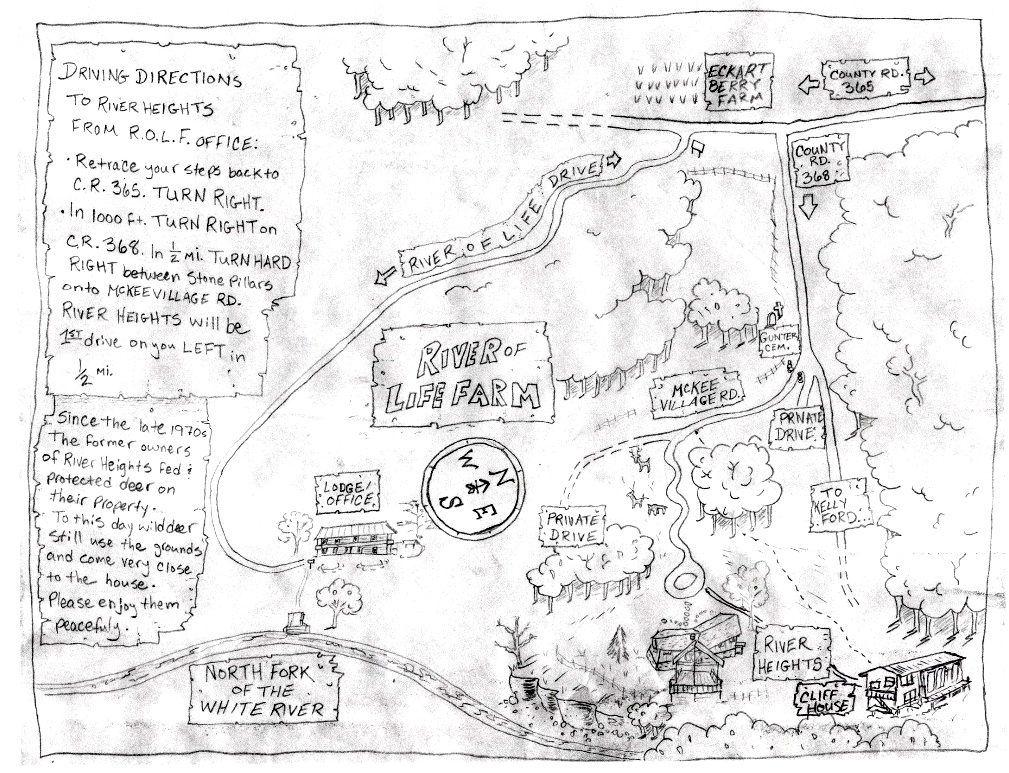 DRIVING DIRECTIONS
TO RIVER HEIGHTS
FROM R.O.L.F. OFFICE:
· Retrace your steps back to
C.R. 365. TURN RIGHT.
· In 1000 ft. TURN RIGHT on
C.R. 368. In 1/2 mi. TURN HARD
RIGHT between Stone Pillars
onto MCKEE VILLAGE RD.
RIVER HEIGHTS will be
1ST drive on you LEFT in
1/2 mi.
Since the late 1970s
the former owners
of River Heights fed &
protected deer on
their property.
To this day wild deer
still use the grounds
and come very close
to the house.
Please enjoy them
peacefuly.
ECKART
BERRY
FARM
COUNTY RD.
365
COUNTY
RD.
368
RIVER OF LIFE DRIVE
RIVER OF
LIFE FARM
GUNTER
CEM.
MCKEE
VILLAGE RD.
PRIVATE
DRIVE
LODGE/
OFFICE
N
E
S
W
PRIVATE
DRIVE
TO
KELLY
FORD
RIVER
HEIGHTS
CLIFF
HOUSE
NORTH FORK
OF THE
WHITE RIVER